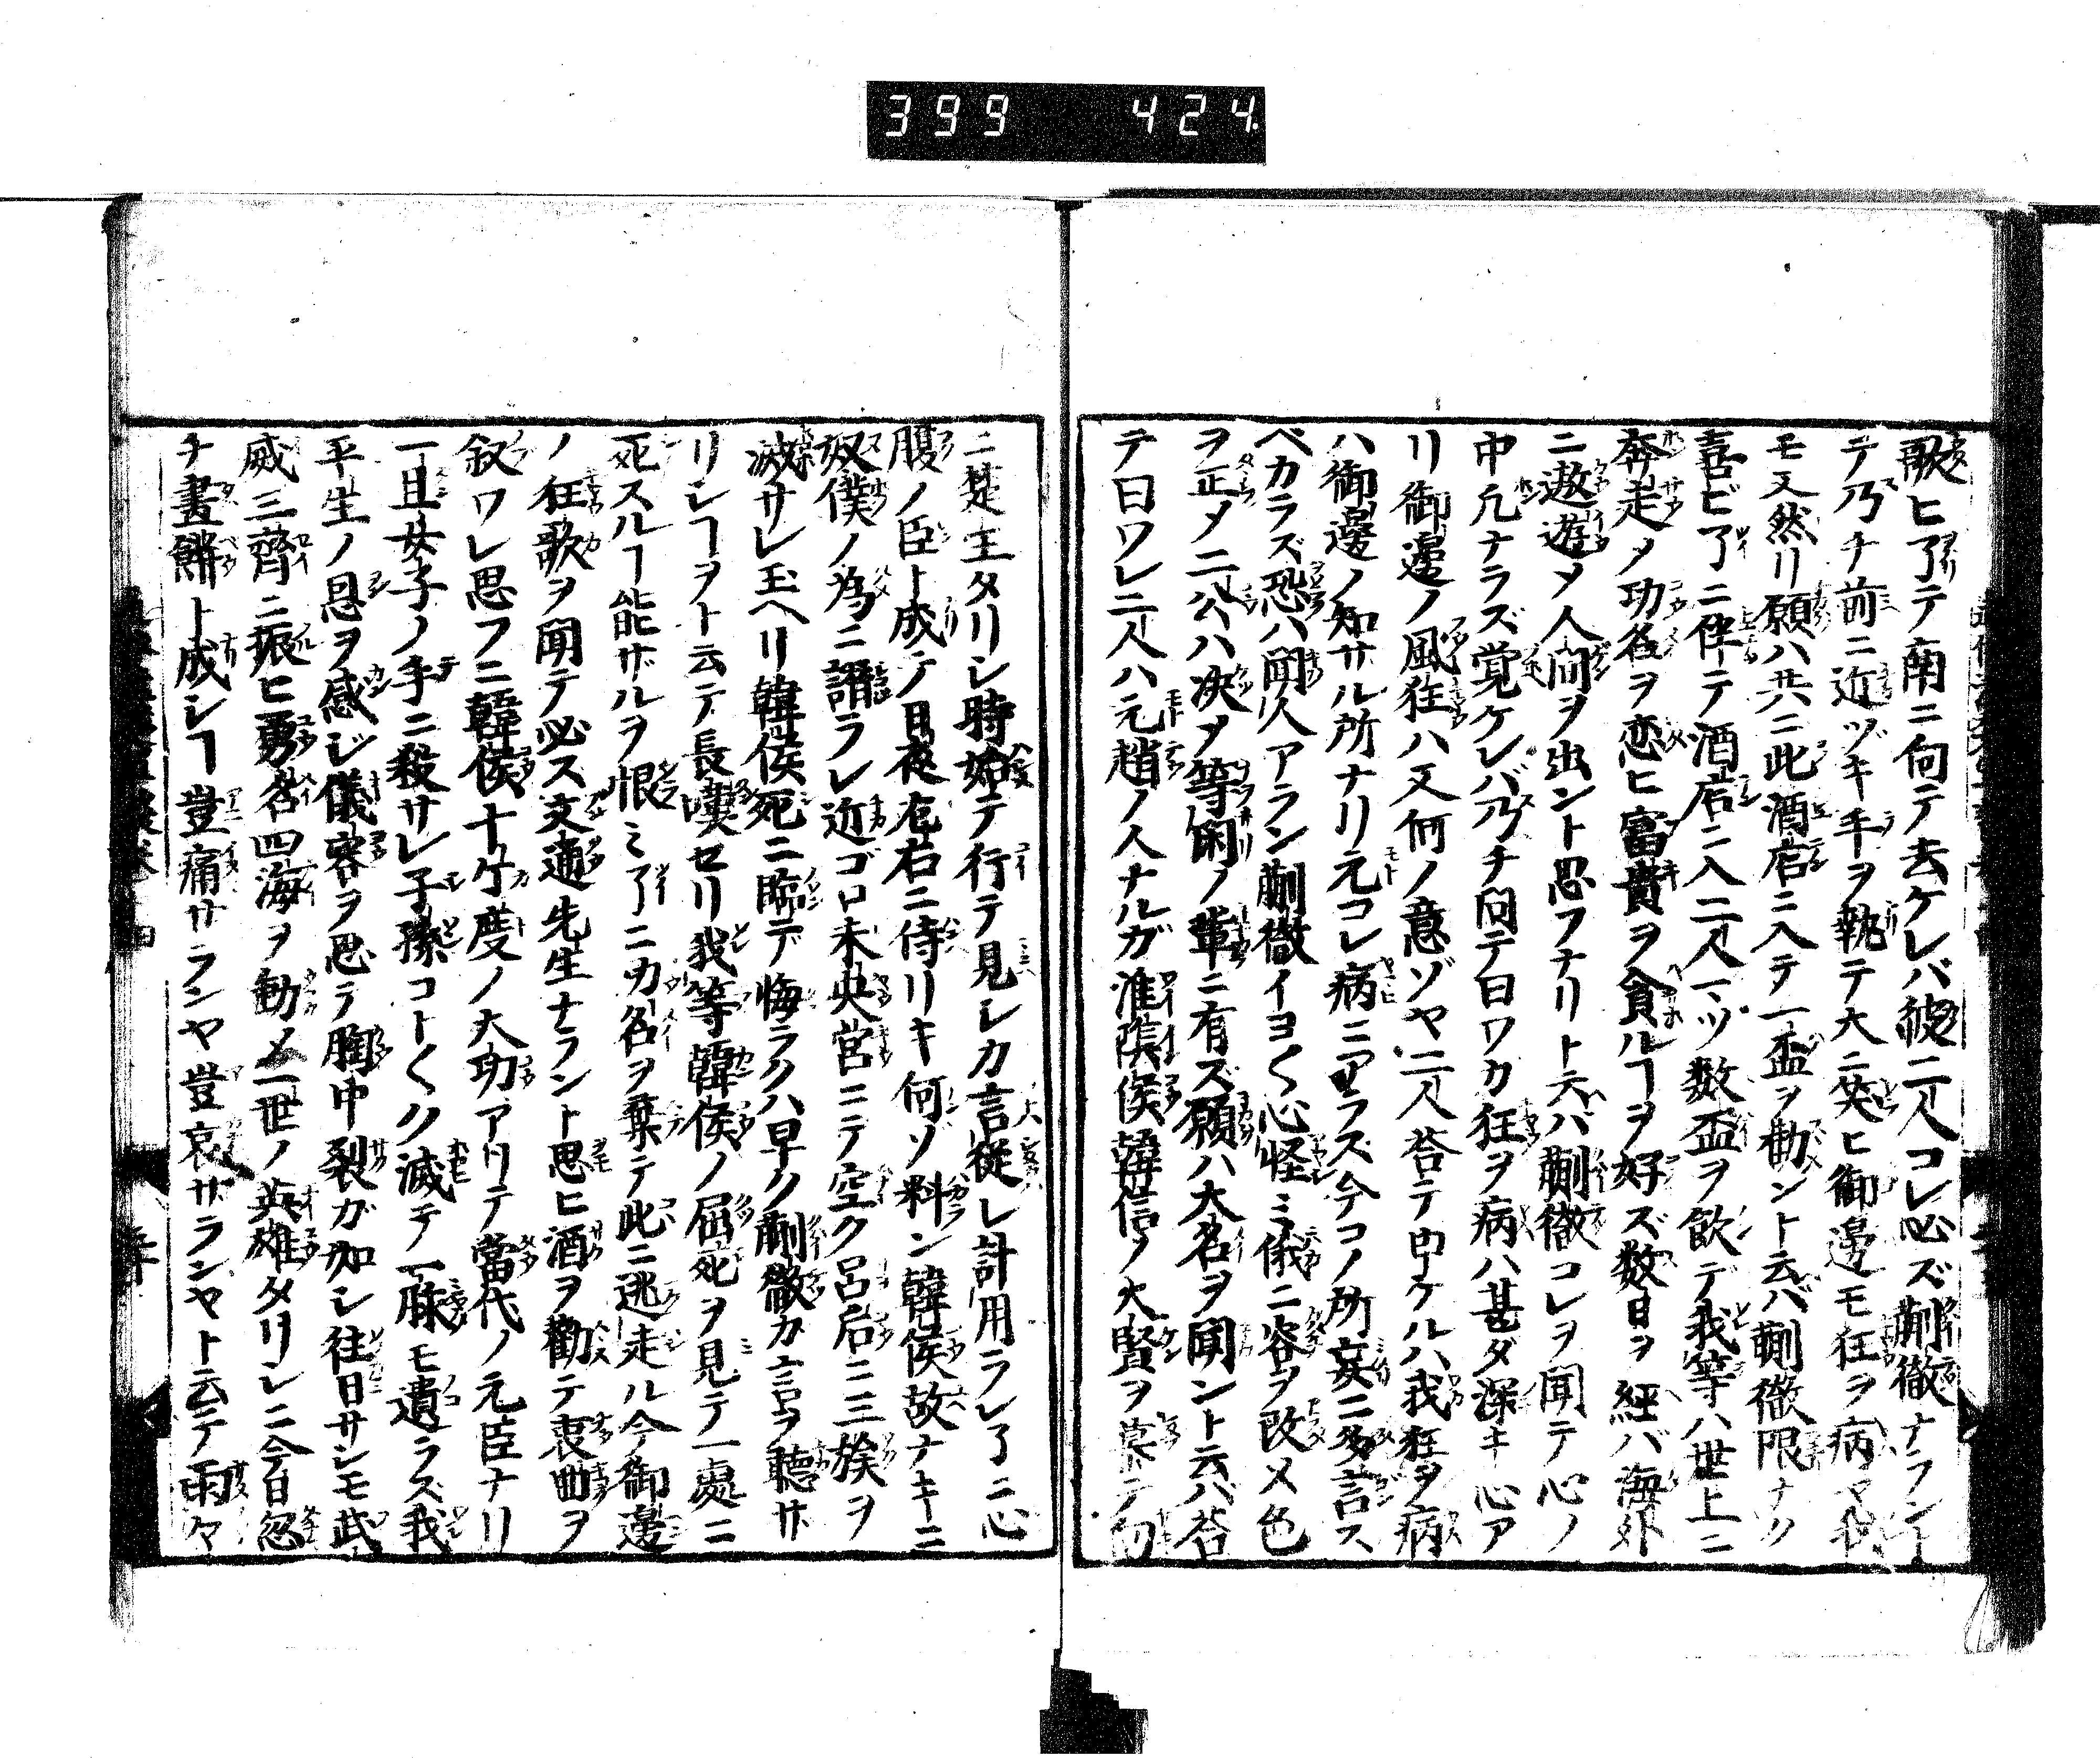 399 424
歌ヒ了テ南ニ向テ去ケレバ彼二人コレ必ズ蒯徹ナラント
テ乃チ前ニ近ヅキ手ヲ執テ大ニ笑ヒ御邊モ狂ヲ病マ我
モ又然リ願ハ共ニ此酒店ニ入テ一盃ヲ勧ント云バ蒯徹限ナク
喜ビ了ニ伴テ酒店ニ入二人一ツ数盃ヲ飲デ我等ハ世上ニ
奔走メ功名ヲ恋ヒ富貴ヲ貪ルヿヲ好ズ数日ヲ経バ海外
ニ遨遊メ人間ヲ出ント思フナリト云バ蒯徹コレヲ聞テ心ノ
中凡ナラズ覚ケレバ乃チ問テ曰ワカ狂ヲ病ハ甚ダ深キ心ア
リ御邊ノ風狂ハ又何ノ意ゾヤ二人荅テ申ケルハ我狂ヲ病
ハ御邊ノ知サル所ナリ元コレ病ニアラズ今コノ所妄ニ多言ス
ベカラズ恐ハ聞人アラン蒯徹イヨ〱心怪ミ儀ニ容ヲ改メ色
ヲ正メ二公ハ决メ等閑ノ輩ニ有ズ願ハ大名ヲ聞ント云バ荅
テ曰ワレ二人ハ元趙ノ人ナルガ淮陰侯韓信ノ大賢ヲ慕テ向
ニ楚王タリシ時始テ行テ見レカ言従レ計用ラレ了ニ心
腹ノ臣ト成テ日夜左右ニ侍リキ何ソ料ン韓侯故ナキニ
奴僕ノ為ニ譖ラレ近ゴロ未央宮ニテ空ク呂后ニ三族ヲ
滅サレ玉ヘリ韓侯死ニ臨デ悔ラクハ早ク蒯徹カ言ヲ聴サ
リシヿヲト云テ長嘆セリ我等韓侯ノ屈死ヲ見テ一處ニ
死スルヿ能ザルヲ恨ミ了ニ功名ヲ棄テ此ニ逃走ル今御邊
ノ狂歌ヲ聞テ必ス文通先生ナラント思ヒ酒ヲ勸テ衷曲ヲ
叙ワレ思フニ韓侯十ケ度ノ大功アリテ當代ノ元臣ナリ
一旦女子ノ手ニ殺サレ子孫コト〱ク滅テ一脉モ遺ラズ我
平生ノ恩ヲ感ジ儀容ヲ思テ胸中裂ガ如シ往日サシモ武
威三齊ニ振ヒ勇名四海ヲ動メ一世ノ英雄タリシニ今日忽
チ畫餅ト成シヿ豈痛サランヤ豈哀サランヤト云テ兩々